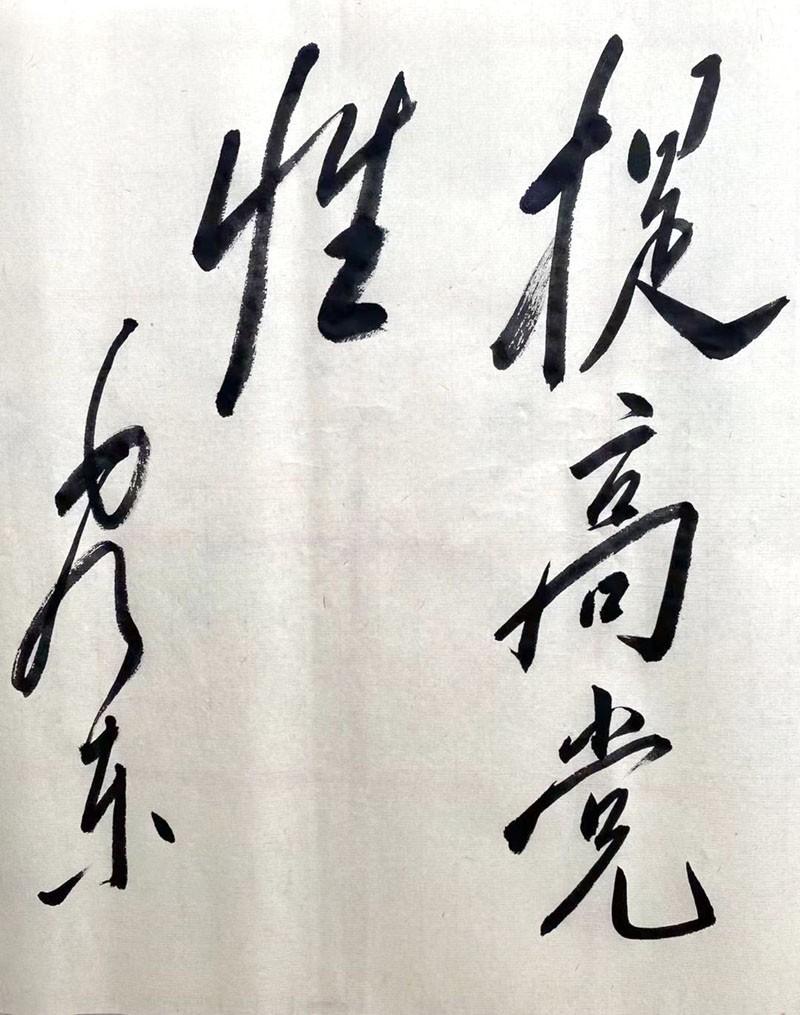 提高党
性
毛泽东